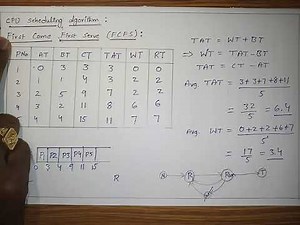 CPU scheduling algorithm :
First Come First Serve (FCFS) :
P.No AT BT CT TAT WT RT
1 0 3 3 3 0 0
2 1 1 4 3 2 2
3 2 5 9 7 2 2
4 3 2 11 8 6 6
4 4 15 11 7 7
P1 P2 P3 P4 P5
0 3 4 9 11 15
R
TAT = WT + BT
⇒ WT = TAT - BT
TAT = CT - AT
Avg. TAT = 3+3+7+8+11
5
= 32 = 6.4
5
Avg. WT = 0+2+2+6+7
5
= 17 = 3.4
5